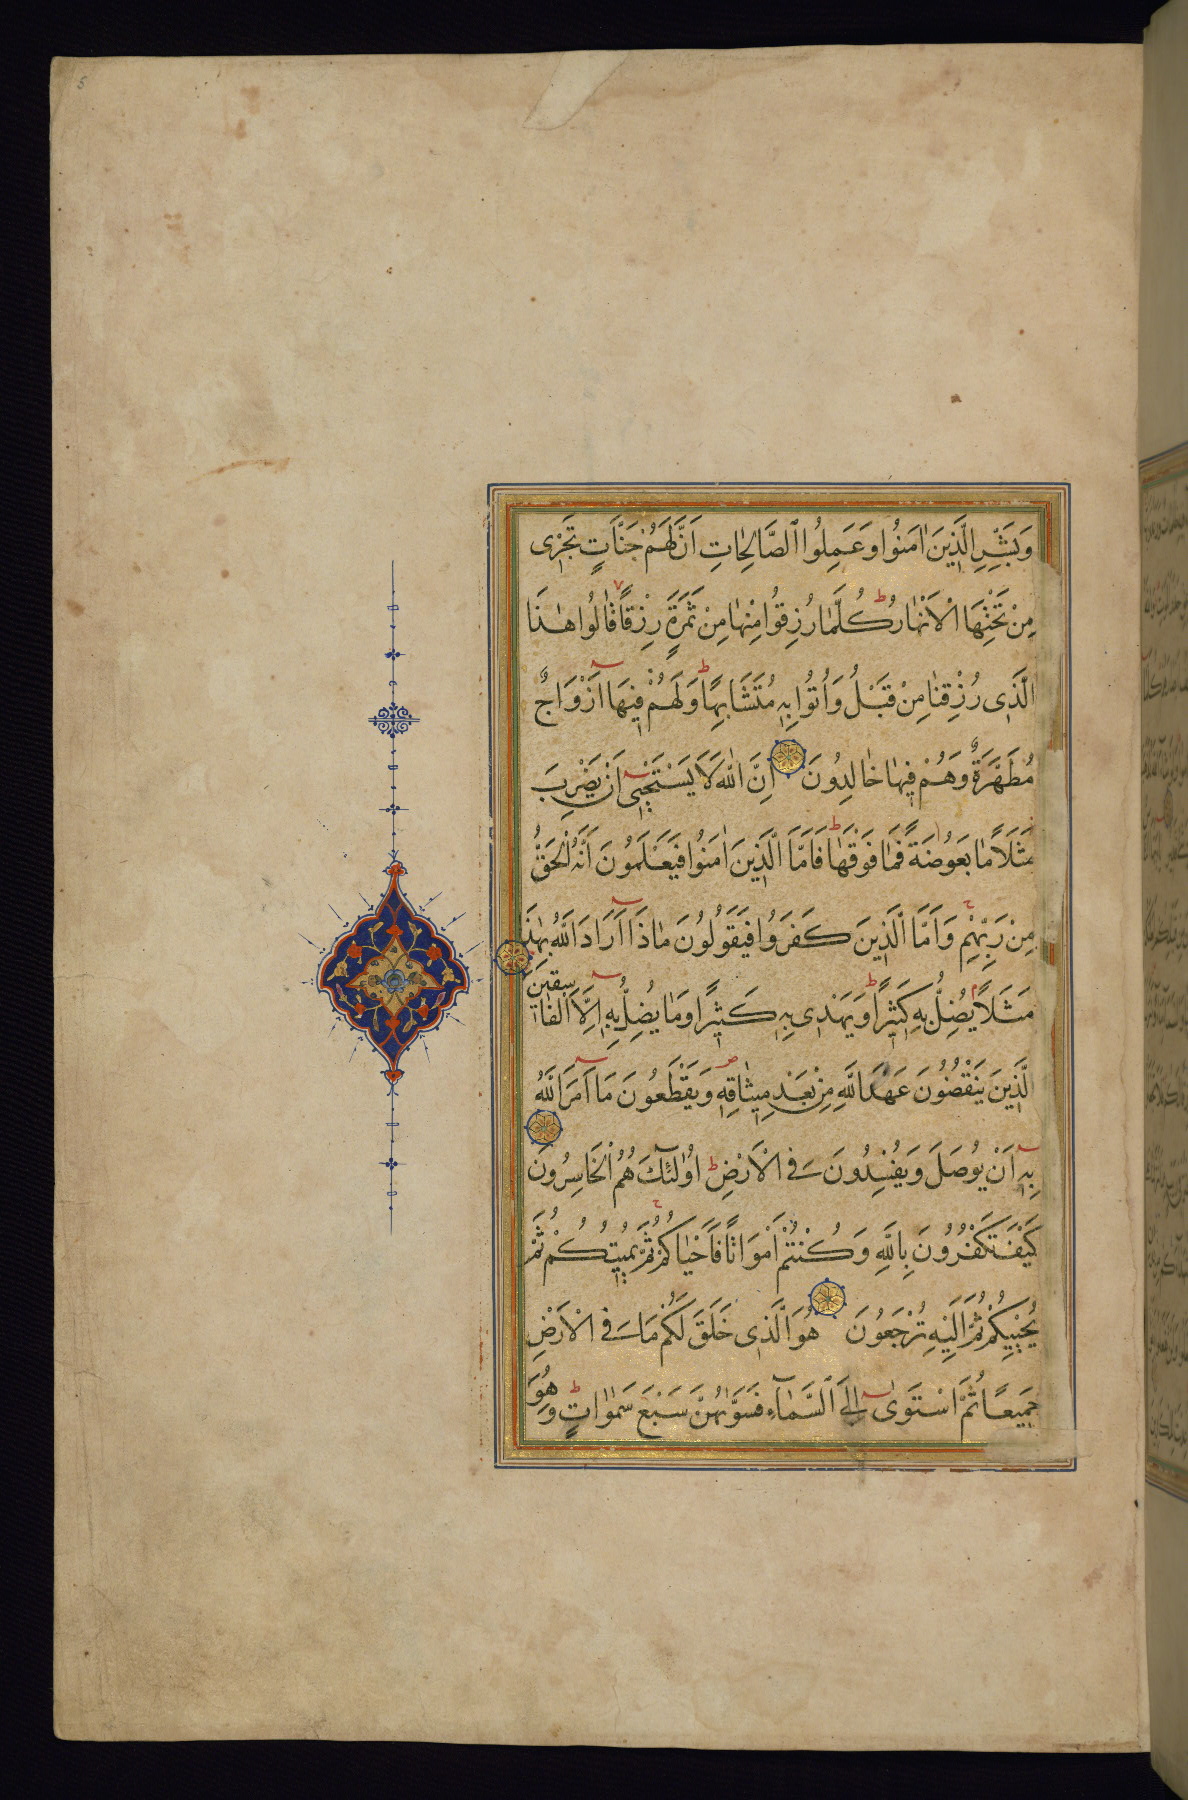 5
وَبَشِّرِ الَّذِينَ اٰمَنُوا وَعَمِلُوا الصَّالِحَاتِ اَنَّ لَهُمْ جَنَّاتٍ تَجْرِى
مِنْ تَحْتِهَا الْاَنْهَارُ ط كُلَّمَا رُزِقُوا مِنْهَا مِنْ ثَمَرَةٍ رِزْقًا قَالُوا هٰذَا
الَّذِى رُزِقْنَا مِنْ قَبْلُ وَاُتُوا بِهٖ مُتَشَابِهًا ط وَلَهُمْ فِيهَا اَزْوَاجٌ
مُطَهَّرَةٌ وَهُمْ فِيهَا خَالِدُونَ اِنَّ اللّٰهَ لَا يَسْتَحْيٖى اَنْ يَضْرِبَ
مَثَلًا مَا بَعُوضَةً فَمَا فَوْقَهَا ط فَاَمَّا الَّذِينَ اٰمَنُوا فَيَعْلَمُونَ اَنَّهُ الْحَقُّ
مِنْ رَبِّهِمْ ج وَاَمَّا الَّذِينَ كَفَرُوا فَيَقُولُونَ مَاذَا اَرَادَ اللّٰهُ بِهٰذَا
مَثَلًا م يُضِلُّ بِهٖ كَثِيرًا وَيَهْدِى بِهٖ كَثِيرًا ط وَمَا يُضِلُّ بِهٖ اِلَّا الْفَاسِقِينَ
الَّذِينَ يَنْقُضُونَ عَهْدَ اللّٰهِ مِنْ بَعْدِ مِيثَاقِهٖ ص وَيَقْطَعُونَ مَا اَمَرَ اللّٰهُ
بِهٖ اَنْ يُوصَلَ وَيُفْسِدُونَ فِى الْاَرْضِ ط اُولٰئِكَ هُمُ الْخَاسِرُونَ
كَيْفَ تَكْفُرُونَ بِاللّٰهِ وَكُنْتُمْ اَمْوَاتًا فَاَحْيَاكُمْ ج ثُمَّ يُمِيتُكُمْ ثُمَّ
يُحْيِيكُمْ ثُمَّ اِلَيْهِ تُرْجَعُونَ هُوَ الَّذِى خَلَقَ لَكُمْ مَا فِى الْاَرْضِ
جَمِيعًا ثُمَّ اسْتَوٰى اِلَى السَّمَآءِ فَسَوّٰيهُنَّ سَبْعَ سَمٰوَاتٍ ط وَهُوَ